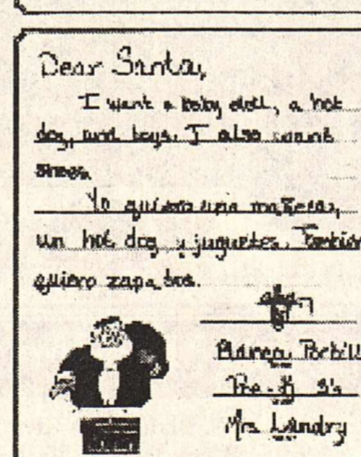 Dear Santa,
I want a baby doll, a hot
dog, and toys. I also want
shoes.
Yo quiero una muñeca,
un hot dog y juguetes. También
quiero zapatos.
Pre-K 3's
Mrs. Landry